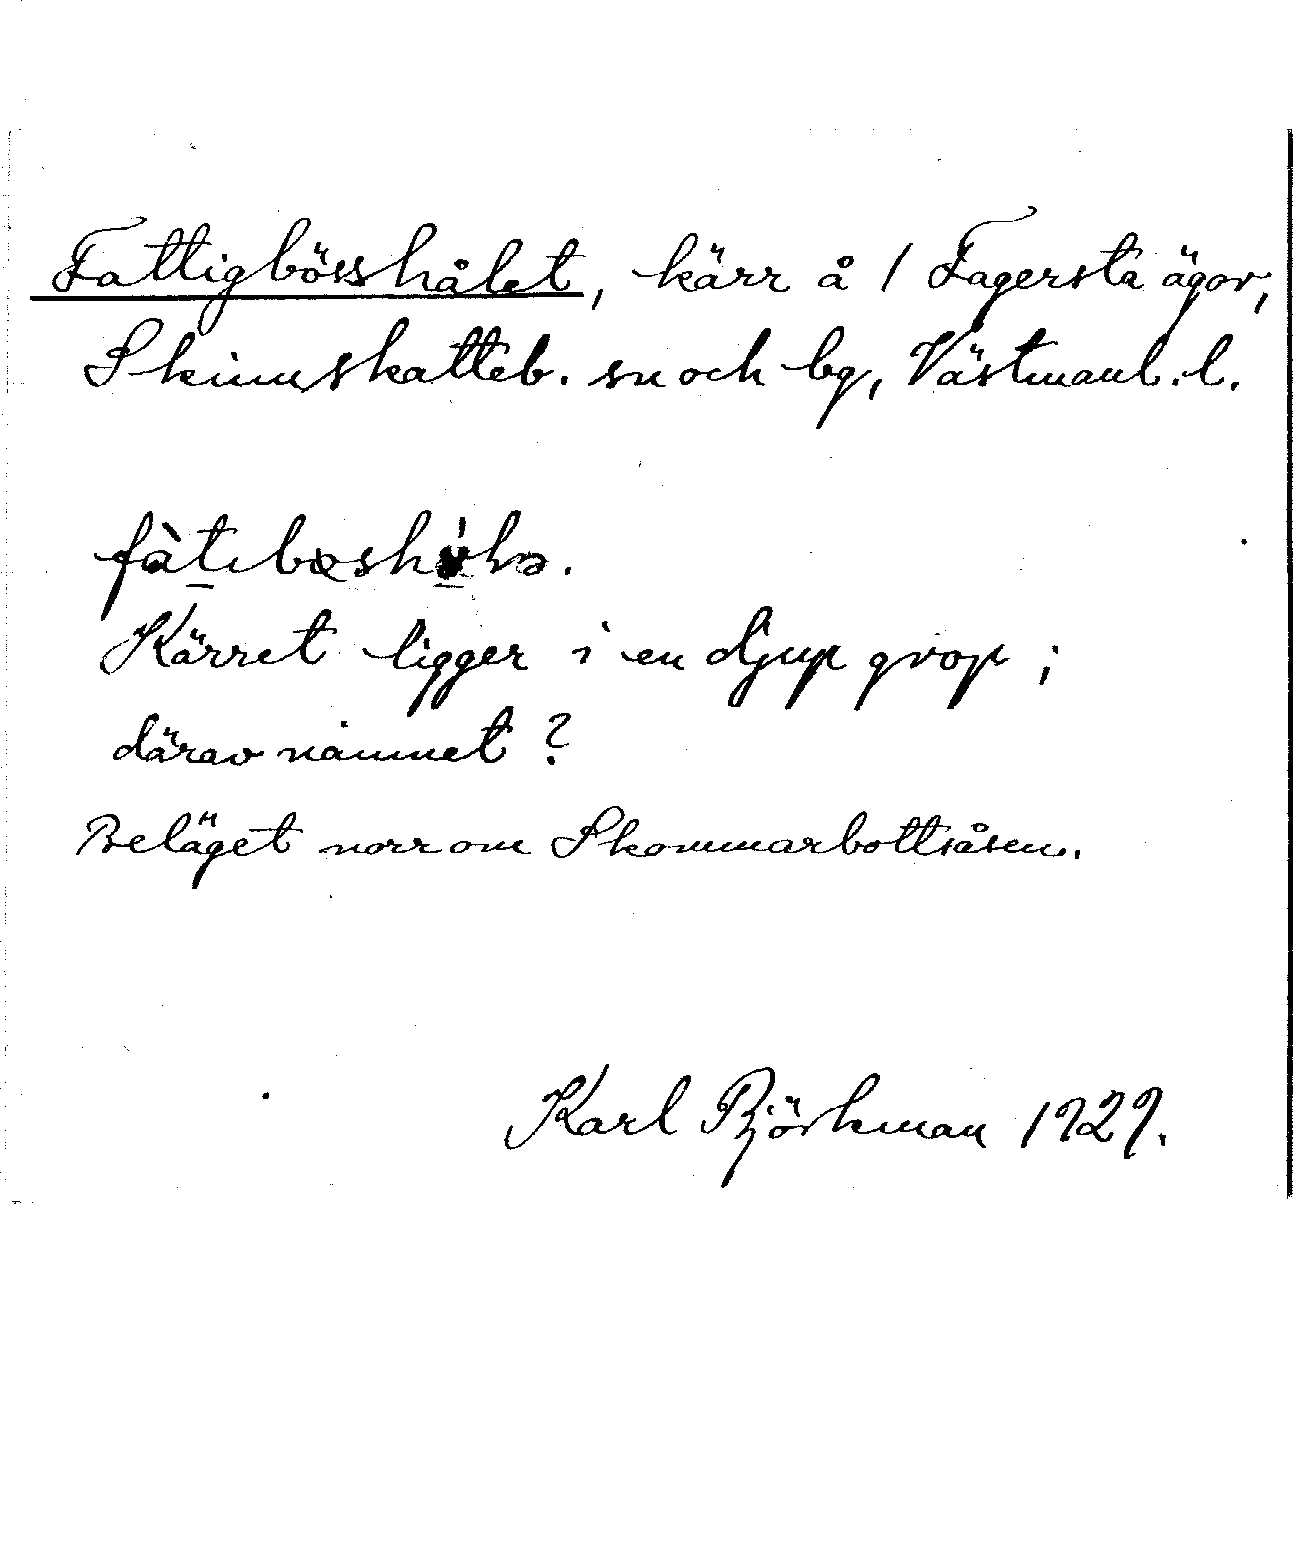 Fattigbösshålet, kärr å 1 Fagersta ägor,
Skinnskatteb. sn och bg, Västmanl. l.
Kärret ligger i en djup grop;
därav namnet?
Beläget norr om Skommarbottsåsen.
Karl Björkman 1929.